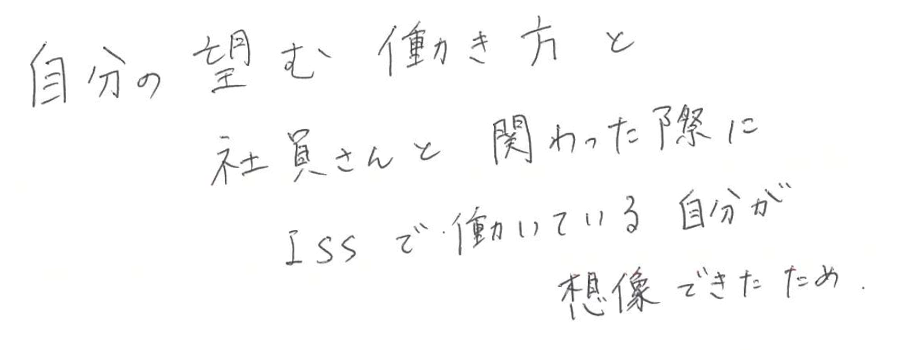 自分の望む働き方と
社員さんと関わった際に
ISSで働いている自分が
想像できたため.